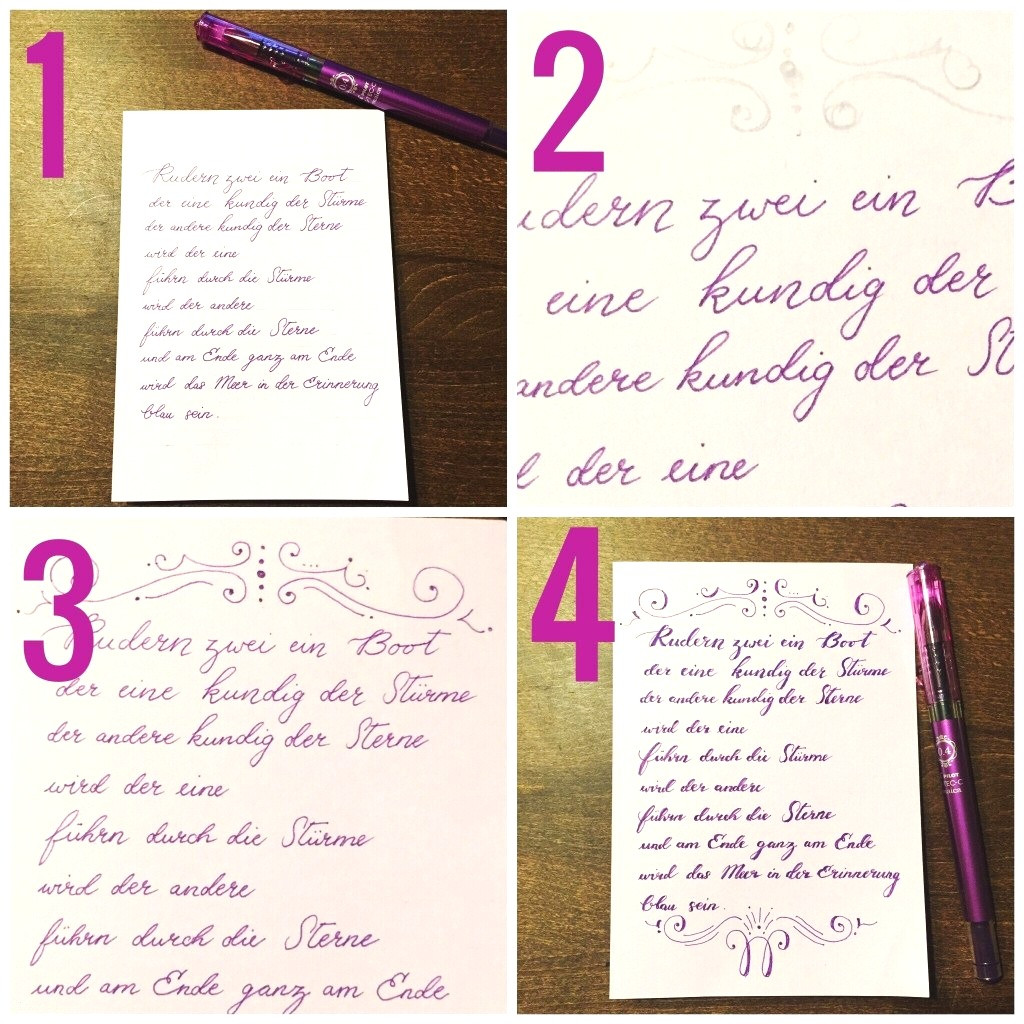 1
Rudern zwei ein Boot
der eine kundig der Stürme
der andere kundig der Sterne
wird der eine
führn durch die Stürme
wird der andere
führn durch die Sterne
und am Ende ganz am Ende
wird das Meer in der Erinnerung
blau sein.
2
udern zwei ein B
eine kundig der
andere kundig der St
der eine
3
Rudern zwei ein Boot
der eine kundig der Stürme
der andere kundig der Sterne
wird der eine
führn durch die Stürme
wird der andere
führn durch die Sterne
und am Ende ganz am Ende
4
Rudern zwei ein Boot
der eine kundig der Stürme
der andere kundig der Sterne
wird der eine
führn durch die Stürme
wird der andere
führn durch die Sterne
und am Ende ganz am Ende
wird das Meer in der Erinnerung
blau sein.
0.4
PILOT